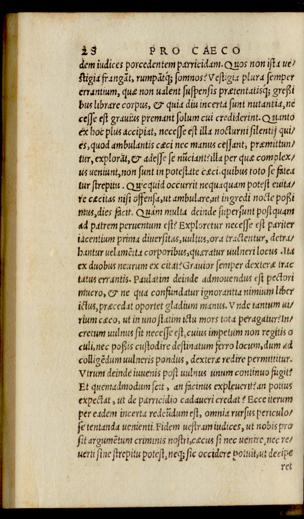 28 PRO CAECO
dem iudices porcedentem parricidam. Quos non ista ve
stigia frangãt, rumpãtq; somnos? Vestigia plura semper
errantium, quæ non ualent suspensis prætentatisq; gressi
bus librare corpus, & quia diu incerta sunt nutantia, ne
cesse est grauius premant solum cui crediderint. Quanto
ex hoc plus accipiat, necesse est illa nocturni silentij qui
es, quod ambulantis cæci nec manus cessant, præmittun
tur, explorãt, & adesse se nũciant? illa per quæ complex
us ueniunt, non sunt in potestate cæci. quibus toto se
tur strepitu. Quicquid occurrit nequaquam potest euita
re cæcitas nisi offensa, ut ambulare, ut ingredi nocte possi
mus, dies facit. Quam multa deinde supersunt postquam
ad patrem peruentum est? Exploretur necesse est pariter
iacentium prima diuersitas, uultus, ora tractentur, detra
hantur uelamẽta corporibus, quæratur uulneri locus. Ita
ex duobus neutrum excitat? Grauior semper dexteræ trac
tatus errantis. Paulatim deinde admouendus est pectori
mucro, & ne qua confundatur ignorantia nimium liber
ictus, præcedat oportet gladium manus. Vnde tantum ui
rium cæco, ut in uno statim ictu mors tota peragatur? In
certum uulnus sit necesse est, cuius impetum non regitis o
culi, nec possis custodire destinatum ferro locum, dum ad
colligẽdum uulneris pondus, dexteræ redire permittitur.
Vtrum deinde iuuenis post uulnus unum continuo fugit?
Et quemadmodum scit, an facinus expleuerit? an potius
expectat, ut de parricidio cadaueri credat? Ecce iterum
per eadem incerta redeũdum est, omnia rursus periculo/
se tentanda uenienti. Fidem uestram iudices, ut nobis pro
sit argumẽtum criminis nostri, cæcus si nec uenire, nec re/
uerti sine strepitu potest, neq; sic occidere potuit, ut
ret